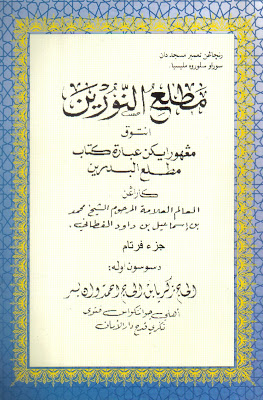 رنچاڠن تعمير مسجد دان
سوراو سلوروه مليسيا
مطلع النّورين
انتوق
مڠهورايكن عبارة كتاب
مطلع البدرين
كاراڠن
العالم العلامة المرحوم الشيخ محمد
بن إسماعيل بن داود الفطاني.
جزء فرتام
دسوسون اوله:
الحاج زكريا بن الحاج احمد وان بسر
أهلي جواتنكواس فتوى
نڬري قدح دار الأمان